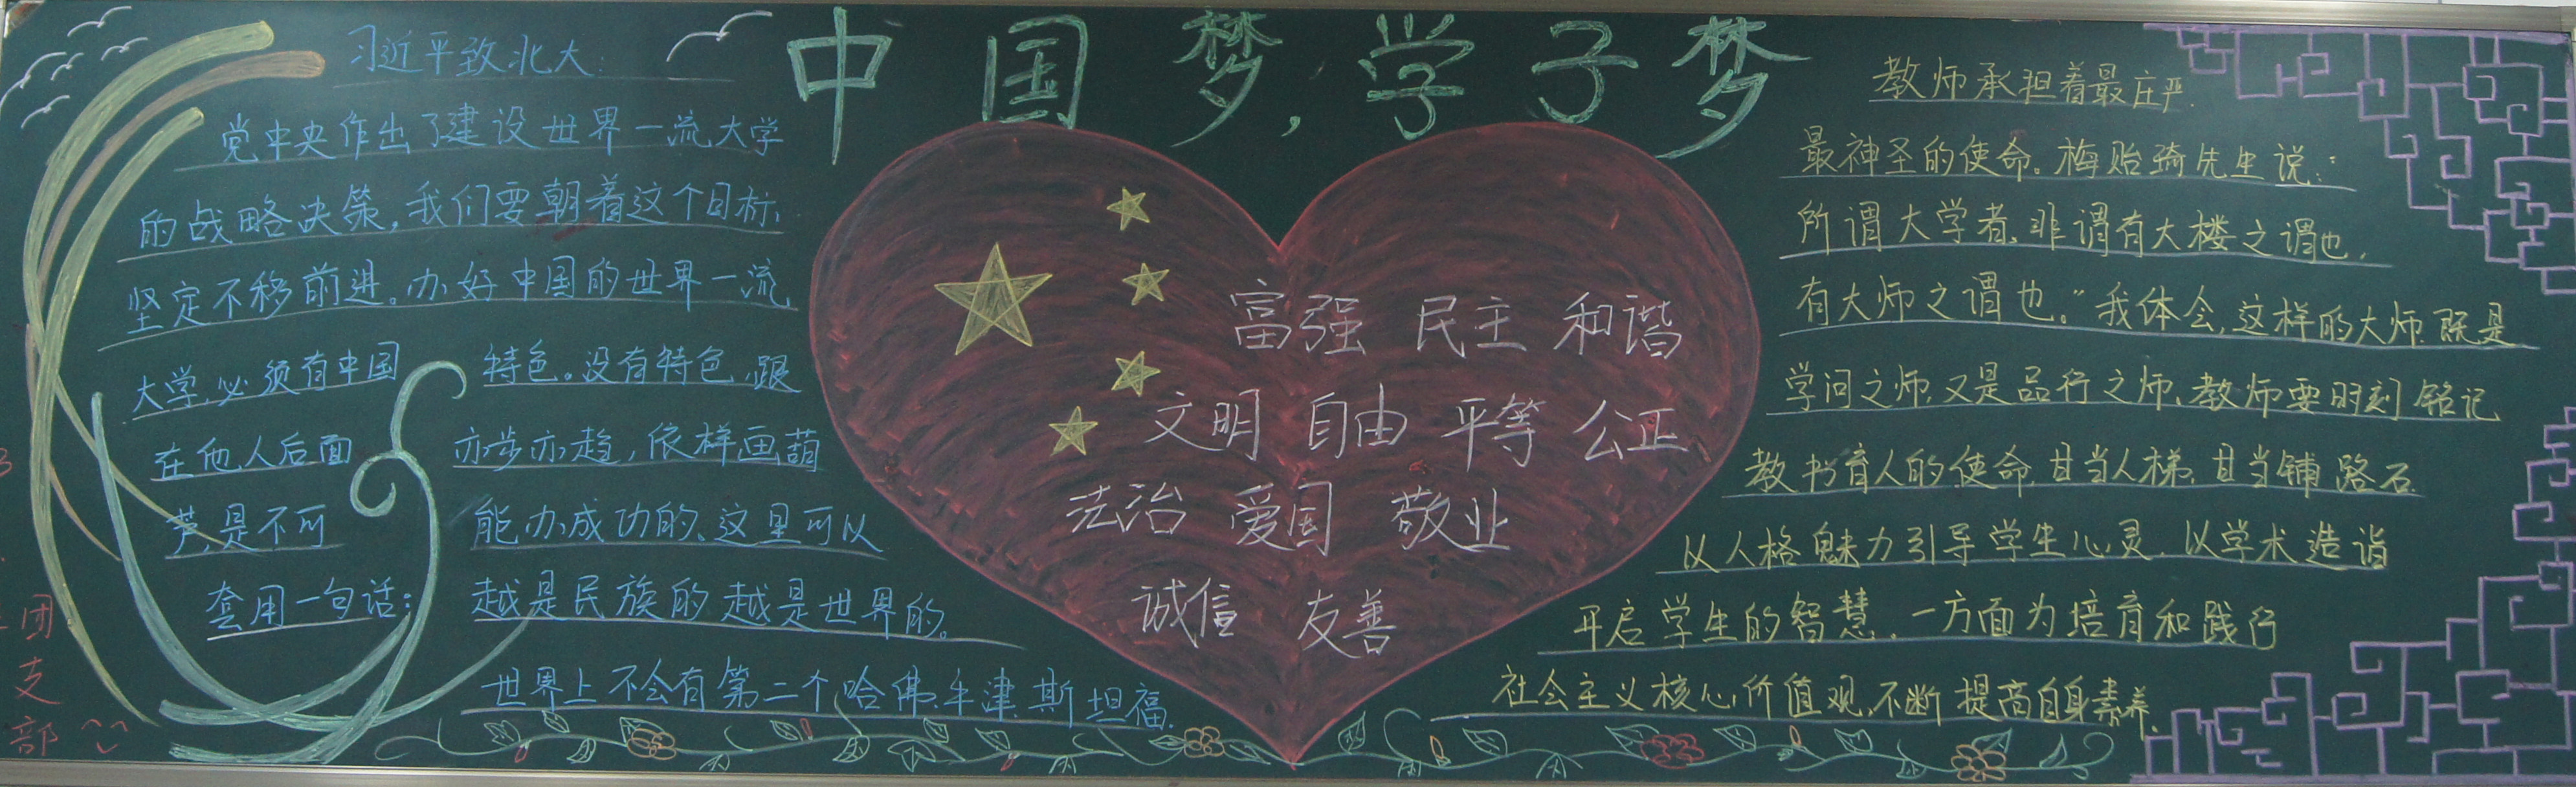 中国梦，学子梦
习近平致北大：
党中央作出了建设世界一流大学
的战略决策，我们要朝着这个目标，
坚定不移前进。办好中国的世界一流
大学，必须有中国特色。没有特色，跟
在他人后面亦步亦趋，依样画葫
芦，是不可能办成功的、这里可以
套用一句话：越是民族的越是世界的。
世界上不会有第二个哈佛、牛津、斯坦福、
富强 民主 和谐
文明 自由 平等 公正
法治 爱国 敬业
诚信 友善
教师承担着最庄严、
最神圣的使命。梅贻琦先生说：
所谓大学者，非谓有大楼之谓也，
有大师之谓也。”我体会，这样的大师，既是
学问之师，又是品行之师、教师要时刻铭记
教书育人的使命，甘当人梯，甘当铺路石、
以人格魅力引导学生心灵，以学术造诣
开启学生的智慧。一方面为培育和践行
社会主义核心价值观，不断提高自身素养、
团
支
部